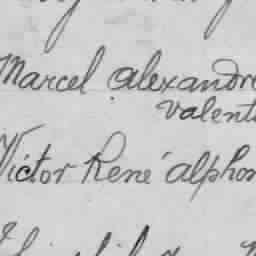 Marcel Alexandre
Valent
Victor René Alphon